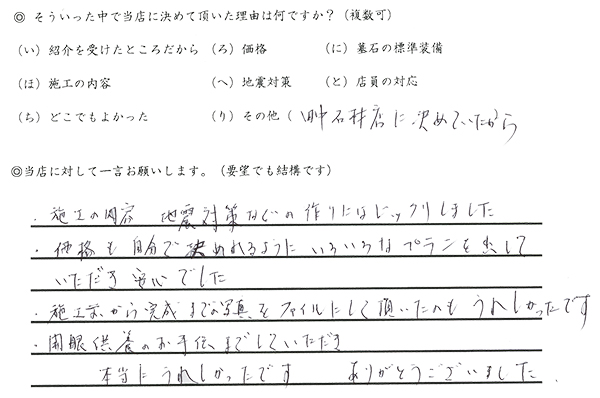 ◎ そういった中で当店に決めて頂いた理由は何ですか？（複数可）
（い）紹介を受けたところだから （ろ）価格 （に）墓石の標準装備
（ほ）施工の内容 （へ）地震対策 （と）店員の対応
（ち）どこでもよかった （り）その他（ 石材店に決めていたから
◎当店に対して一言お願いします。（要望でも結構です）
・施工の内容 地震対策などの作りにはビックリしました
・価格も自分で決めれるようにいろいろなプランを出して
いただき安心でした
・施工前から完成までの写真をファイルにして頂いたのもうれしかったです
・開眼供養のお手伝までしていただき
本当にうれしかったです ありがとうございました.